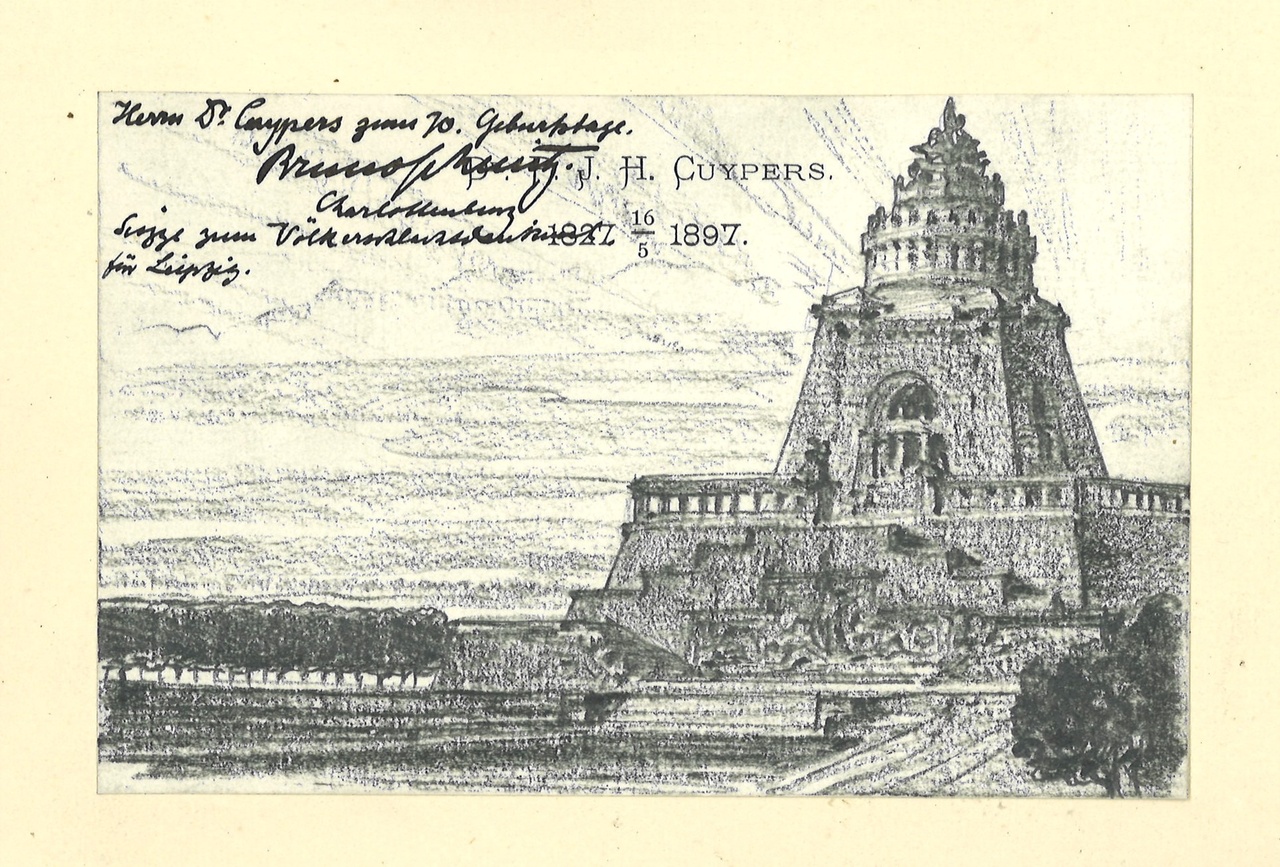 Herrn Dr. Cuypers zum 70. Geburtstage.
Bruno Schmitz.
J. H. CUYPERS.
Charlottenburg
Skizze zum Völkerschlachtdenkmal
1827 16/5 1897.
für Leipzig.